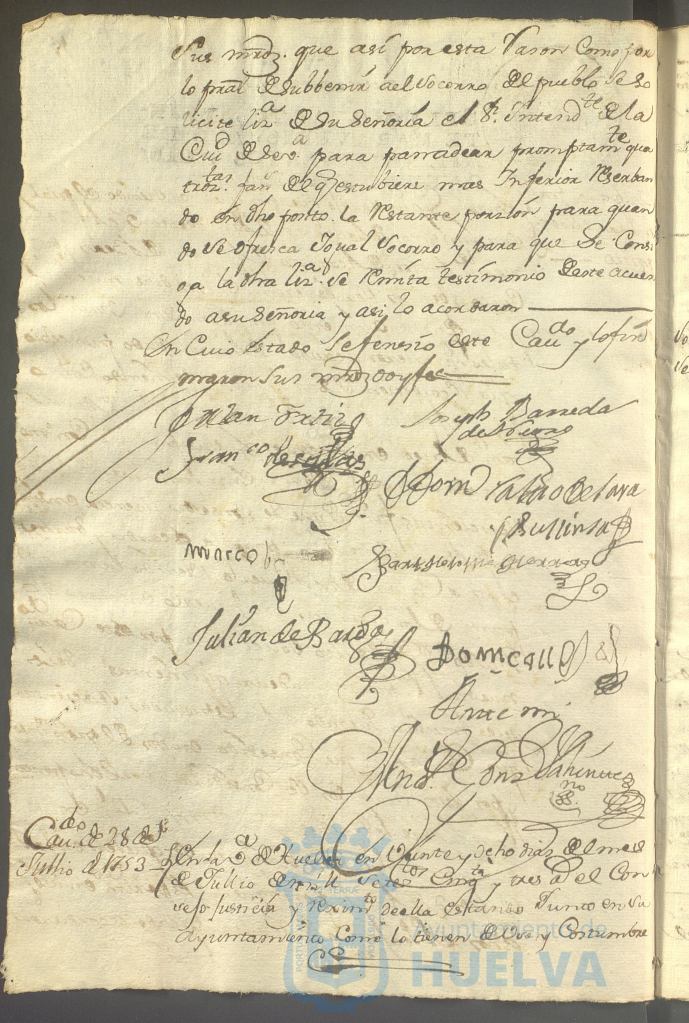 Sus mrdz. que asi por esta Rason Como por
lo pral. de subbenir a el socorro del pueblo se so
licite liza. de su Señoria el Sr. Intendte. de la
Ciud. de Seva. para panadear promptamte. qua
troztas. fans. del qe estubiere mas Inferior Reserban
do en dho posito la Restante porsion para quan
do se ofresca Igual Socorro y para que se Consi
ga la dha liza. se Remita testimonio de este acuer
do a su Señoria y asi lo acordaron
En Cuio estado se fenesio este Caudo. y lo fir
maron sus mrdz doy fee
Joseph Barreda
Franco de
Marco
Bartholome Herrera
Julian de Barza
Ante mi
Caudo. de 28 de
Jullio de 1753
En la va. de Huelva en Veinte y ocho dias del mes
de Jullio de mill Setestos Cinqta y tres as. el Con
sejo Justicia y reximto de ella estando Junto en su
Ayuntamiento Como lo tienen de Uso y Costumbre
Ayuntamiento de
HUELVA